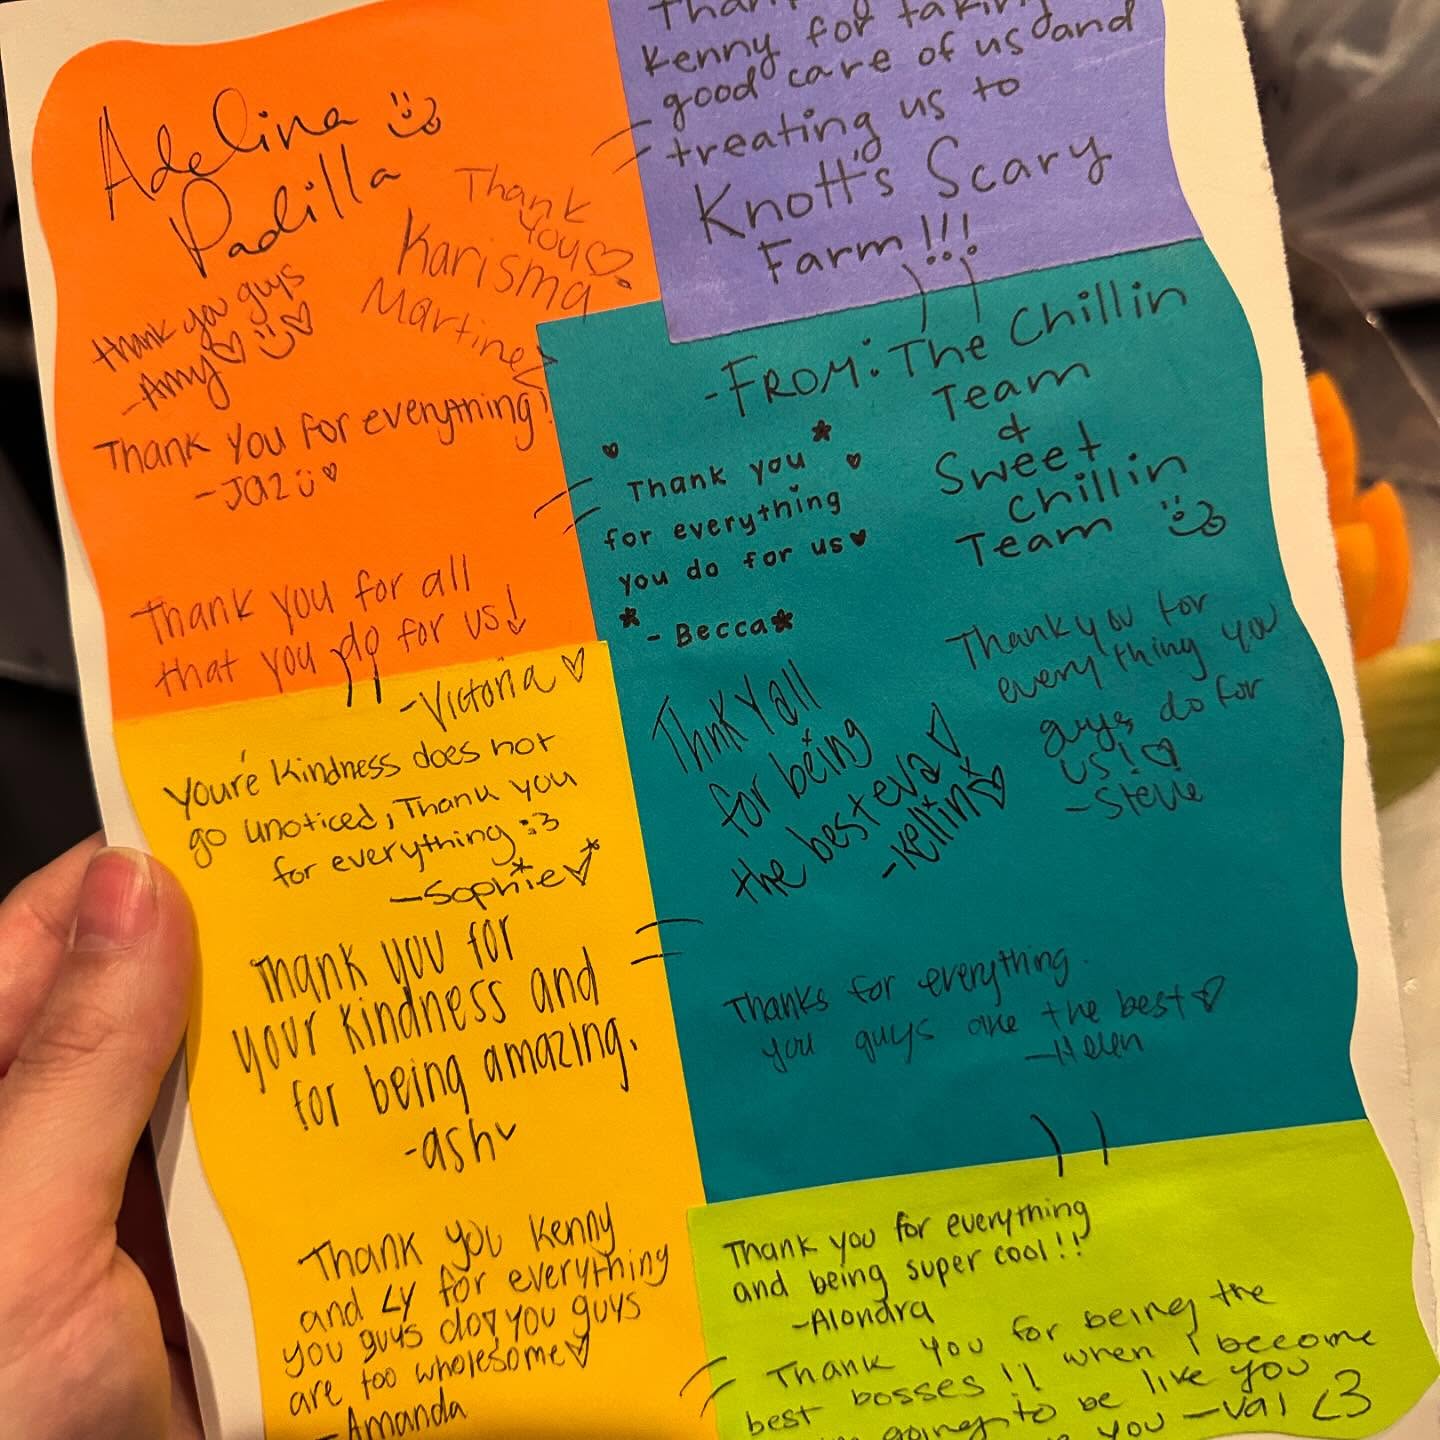 Adelina
Padilla
Thank
you
Karisma
Martinez
thank you guys
-Amy
Thank you for everything!
-Jaz
Thank you for all
that you do for us!
-Victoria
Kenny for taking
good care of us and
treating us to
Knott's Scary
Farm!!!
-FROM: The Chillin
Team
&
Sweet
Chillin
Team
Thank you
for everything
you do for us
-Becca
Thnk Yall
for being
the best eva!
-Kellin
Thank you for
everything you
guys do for
us!
-Stevie
Thanks for everything.
you guys are the best
-Helen
You're Kindness does not
go unoticed, Thank you
for everything :3
-Sophie
Thank you for
your kindness and
for being amazing.
-ash
Thank you Kenny
and Ly for everything
you guys do, you guys
are too wholesome
-Amanda
Thank you for everything
and being super cool!!
-Alondra
Thank you for being the
best bosses!! when I become
going to be like you
you -Val <3